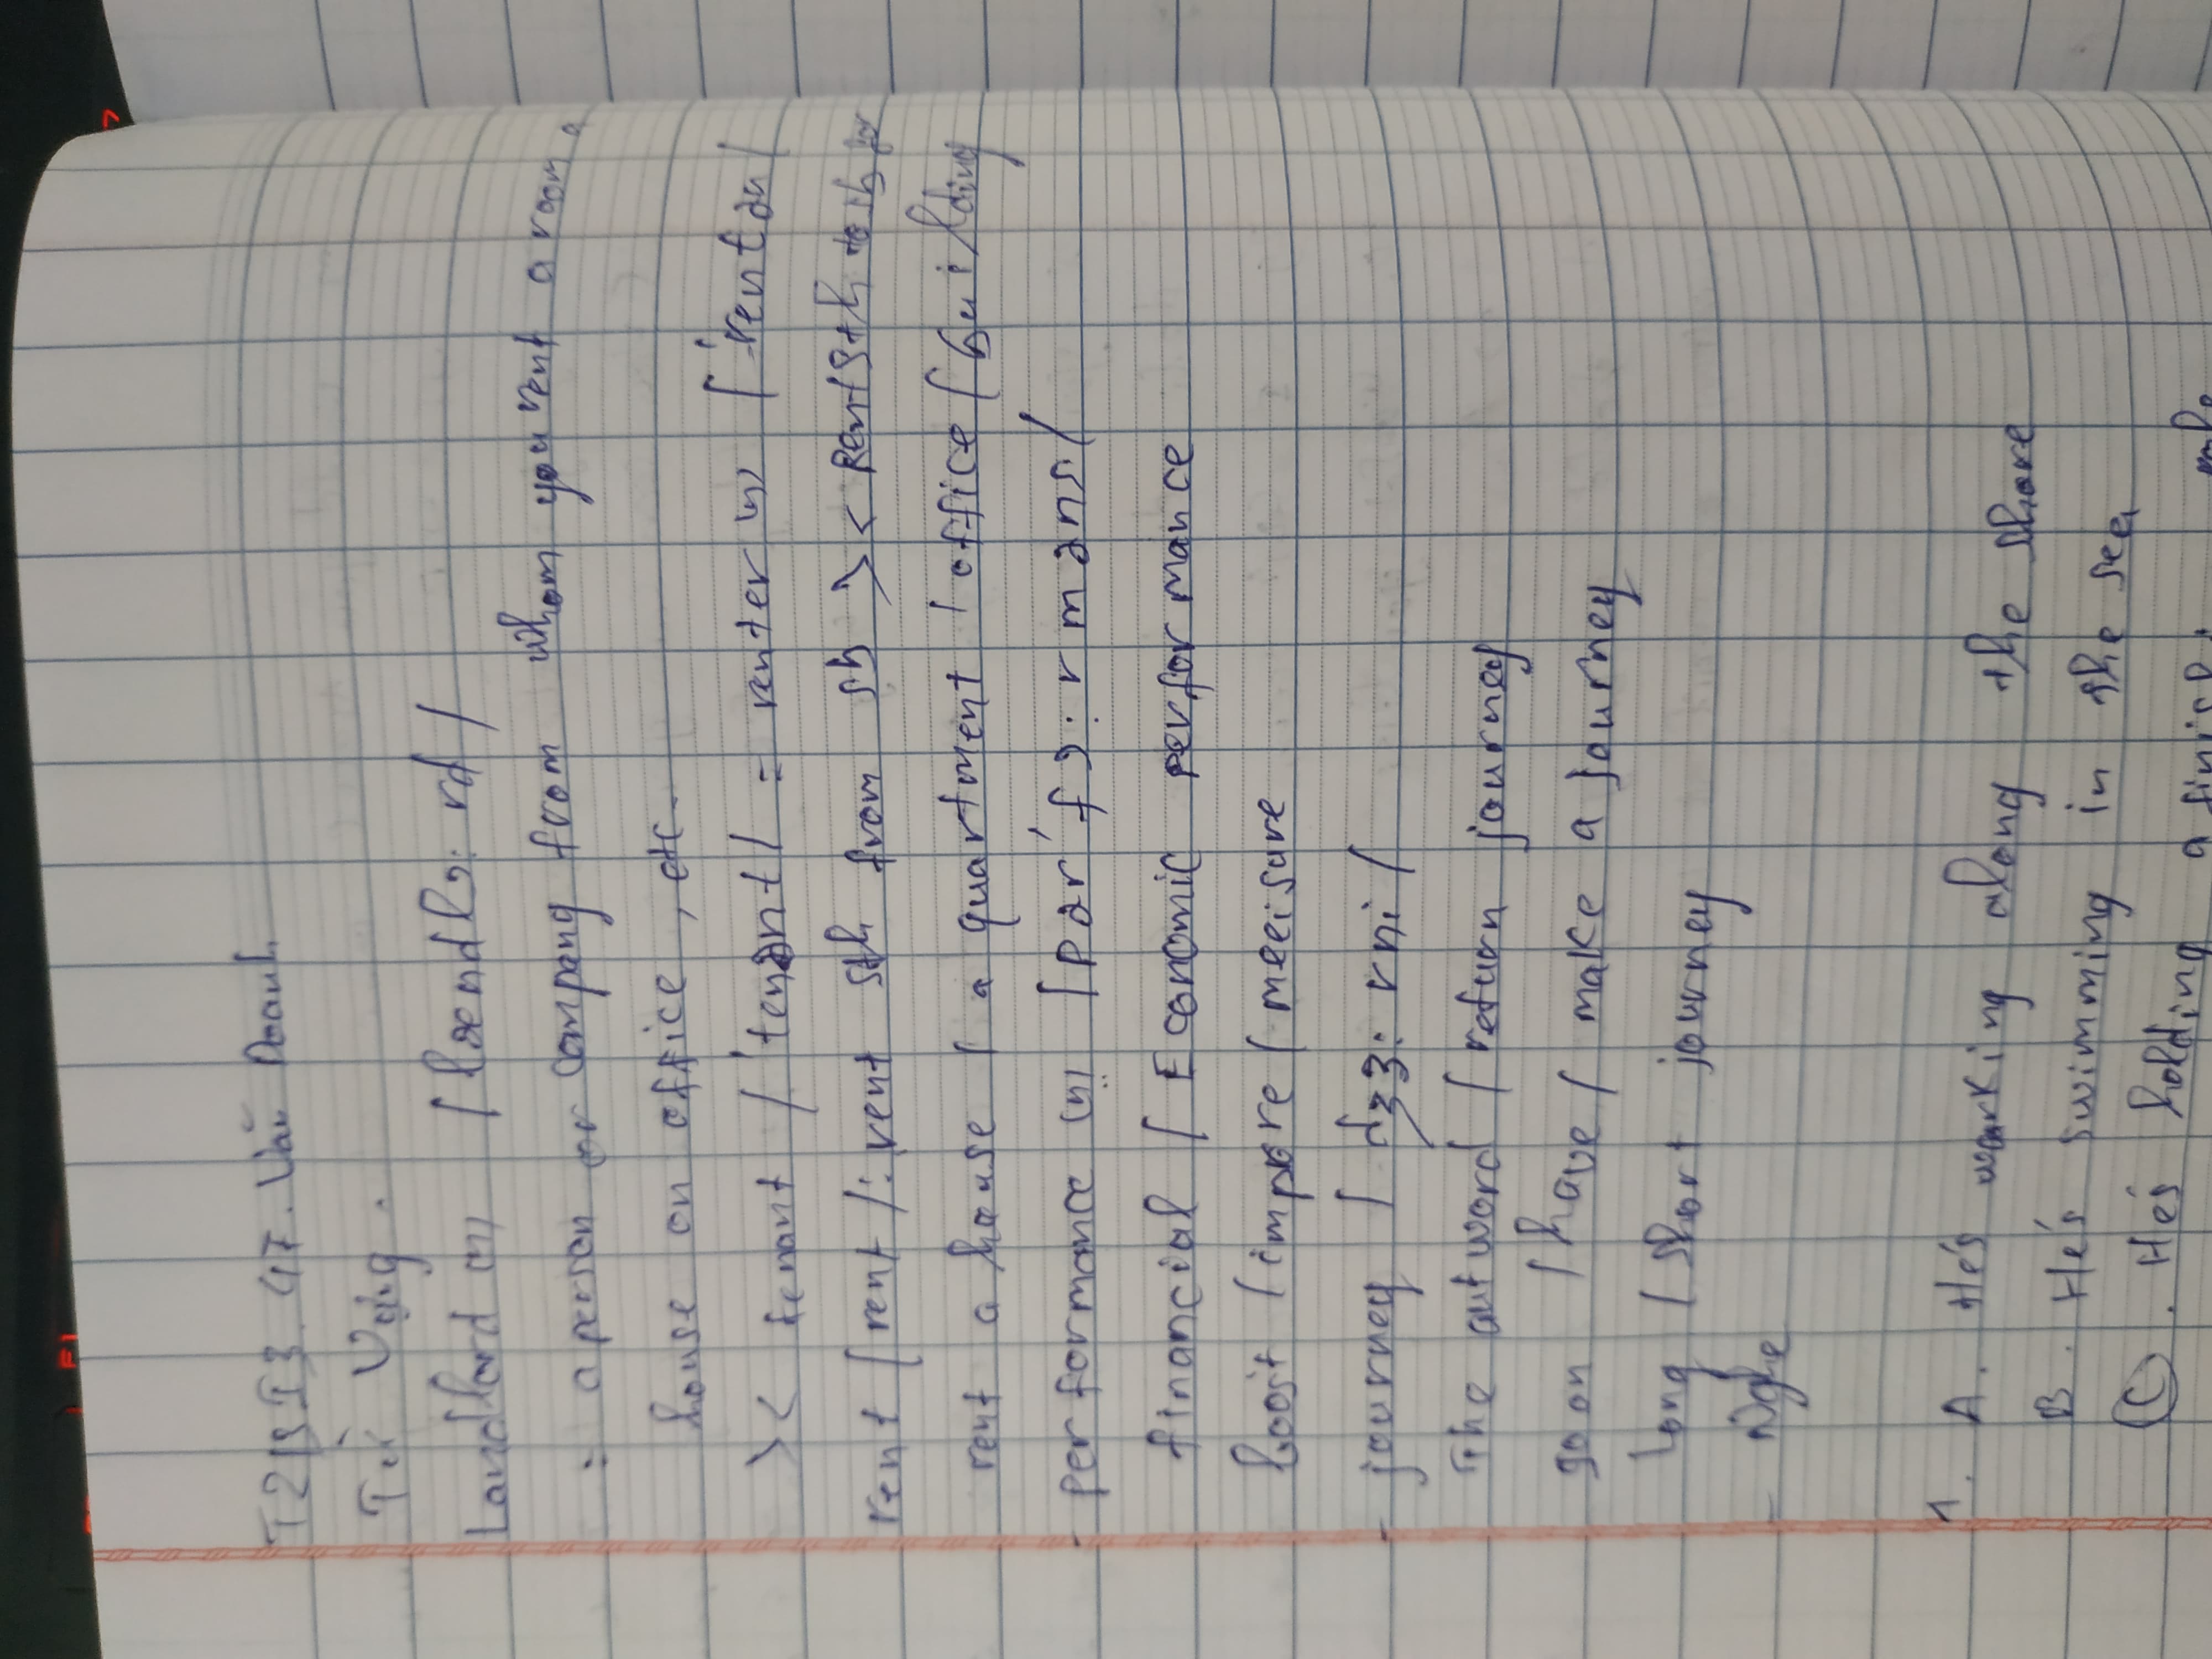 T2BI3. 47. Văn Doanh
Từ Vựng.
Landlord (n) /lændlɔ: rd/
: a person or company from whom you rent a room,
house on office, etc.
>< tenant /'tenənt/ = renter (n) /'rentər/
rent /rent/: rent sth from sb >< Rent sth to sb for
rent a house / a quartment / office / building
- performance (n) /pər'fɔ: rməns/
financial / Economic performance
boost / impore / meeisure
- journey / dʒɜ: rni /
The outword / return journey
go on / have / make a journey
long / short journey
- Nghe
1. A. He's working along the shore
B. He's swimming in the sea
C. He's holding a